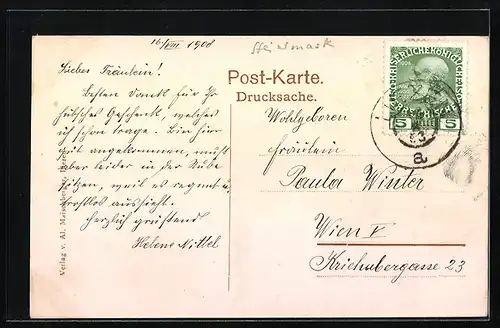 16/VIII 1908
Steiermark
Liebes Fräulein!
Besten Dank für Ihr
hübsches Geschenk, welches
ich schon trage. Bin hier
gut angekommen, muß
aber leider in der Stube
sitzen, weil es regnet u.
trostlos aussieht.
Herzlich grüßend
Helene Nittel
Verlag v. Al.
Post-Karte.
Drucksache.
Wohlgeboren
Fräulein
Paula Winter
Wien V
Kriehubergasse 23
5 5
a